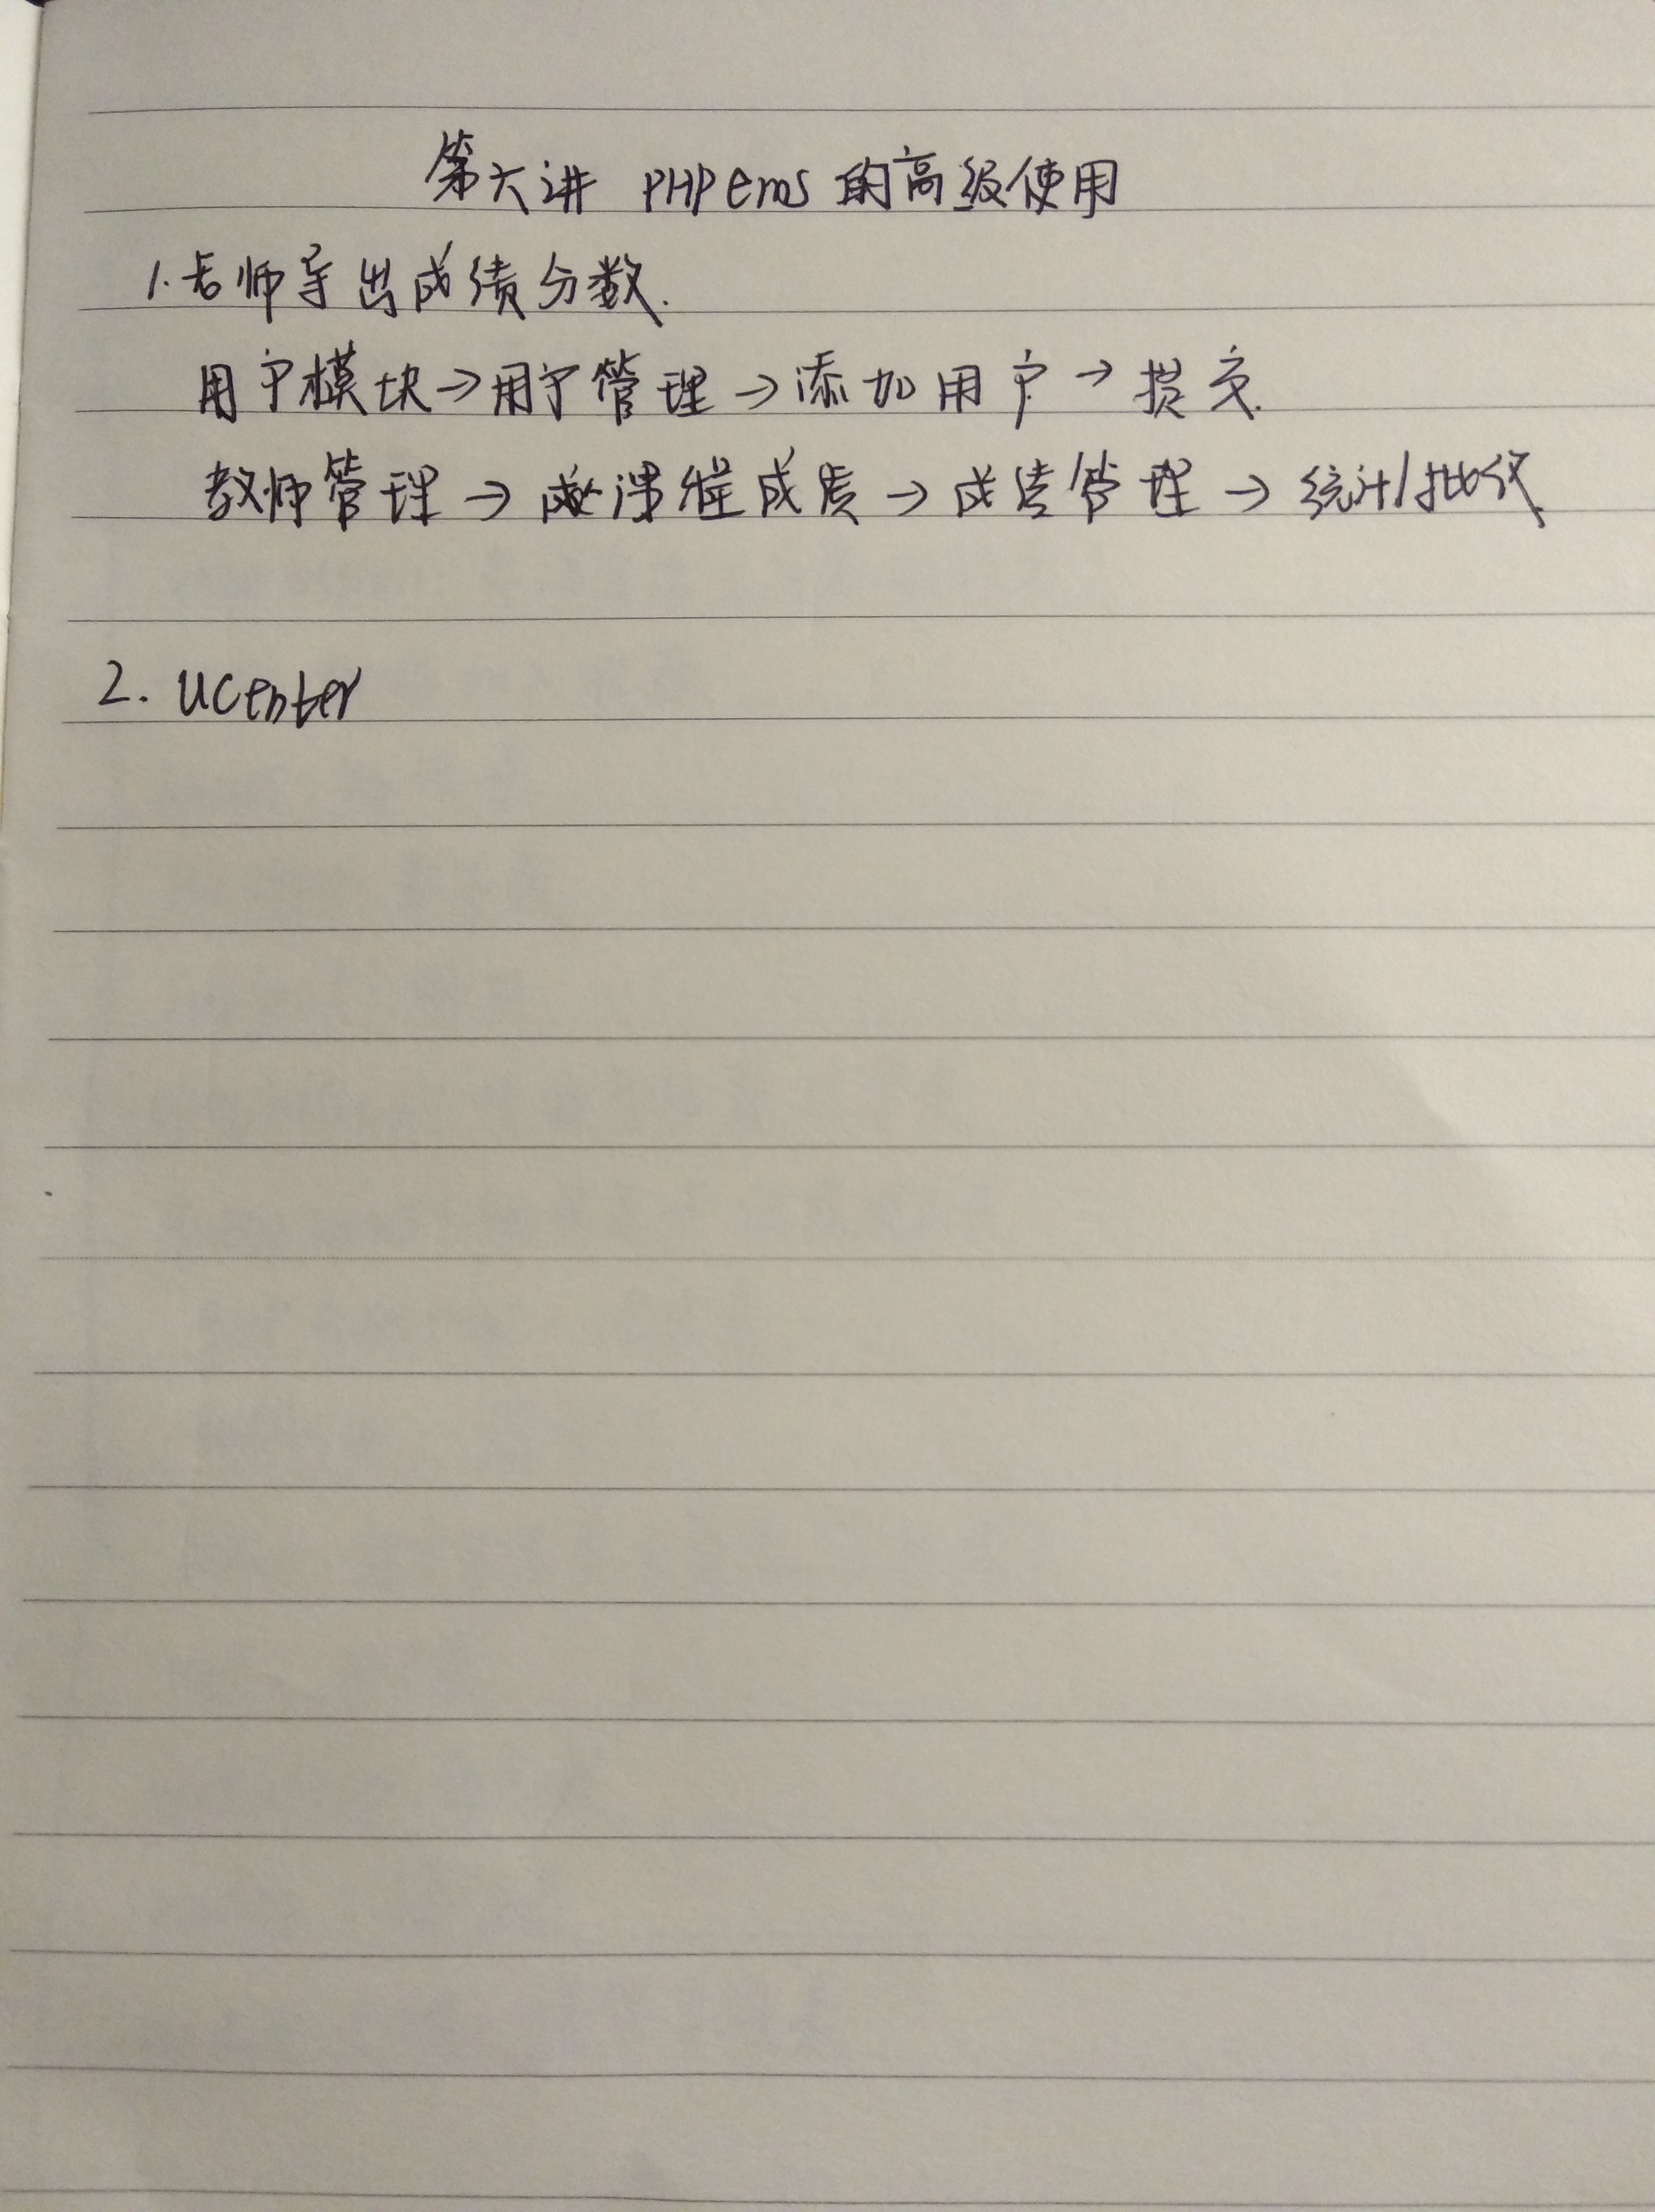 第六讲 PHPems 的高级使用
1.老师导出成绩分数.
用户模块→用户管理→添加用户→提交.
教师管理→成绩→成绩管理→统计/批改
2. UCenter